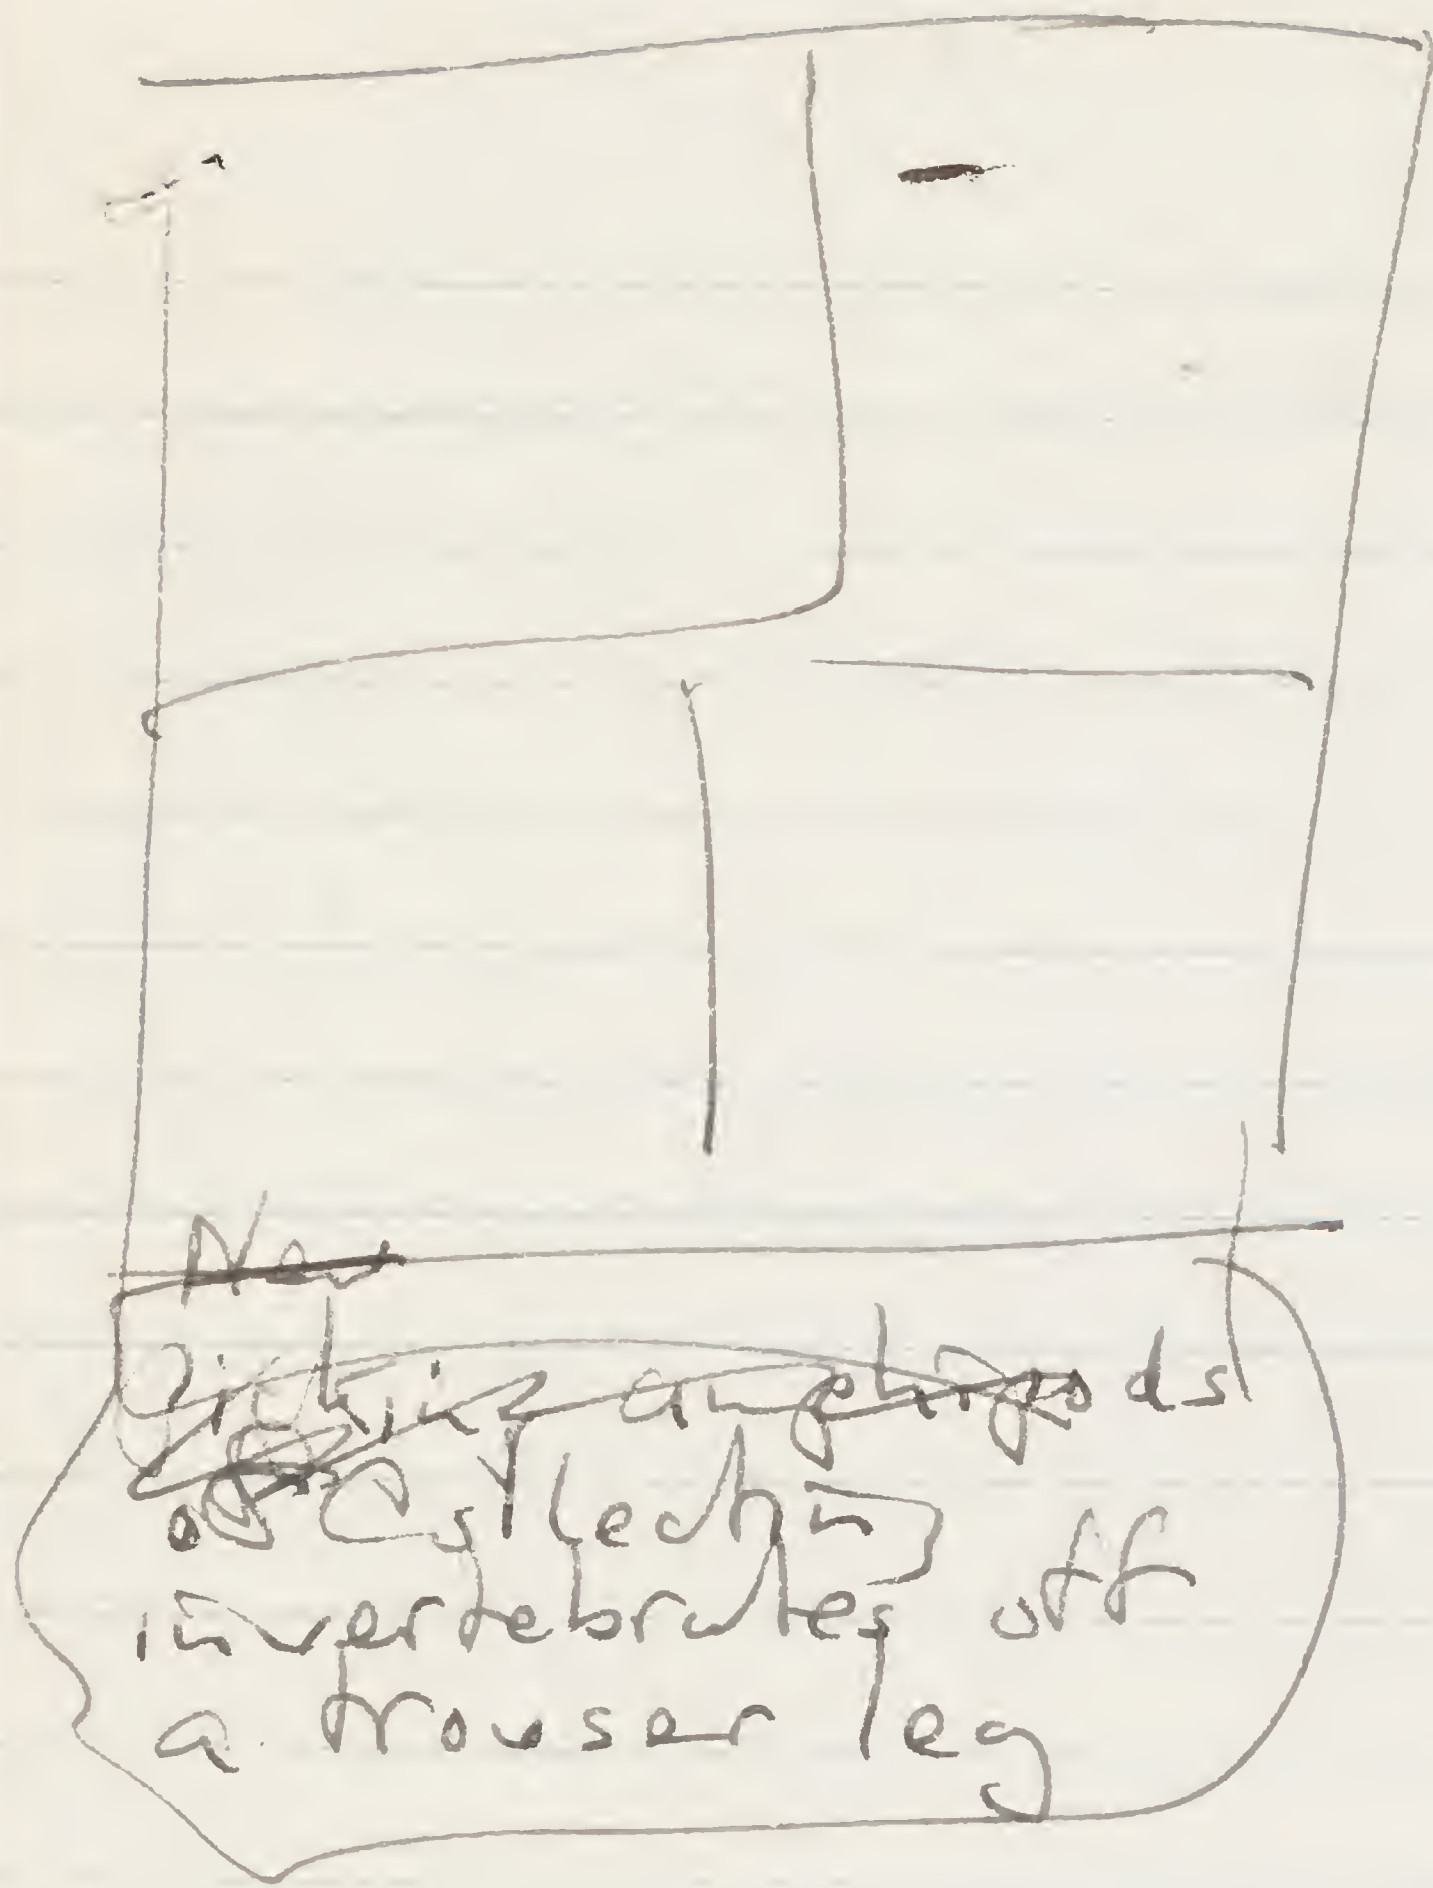 New
Picking amphipods
Collecting
invertebrates off
a trouser leg